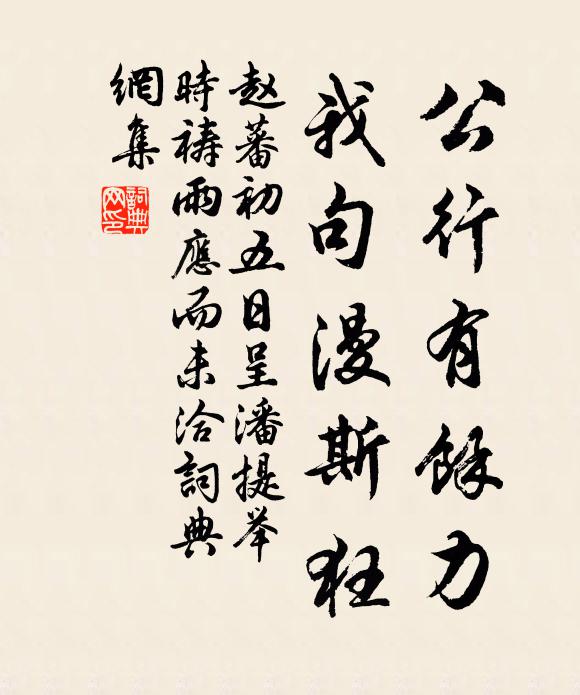 公行有餘力
我句漫斯狂
赵蕃初五日呈潘提举
時禱雨應而未洽詞典
網集
詞典
网印